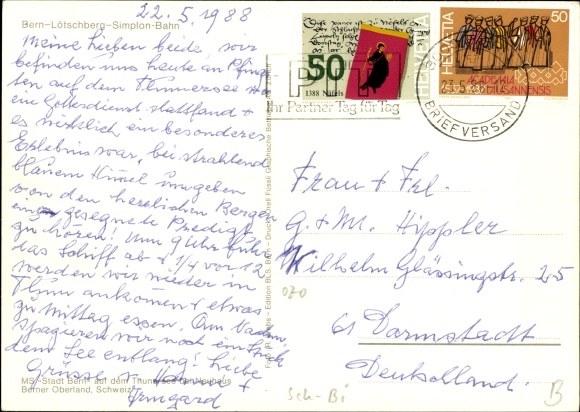 22.5.1988
Bern–Lötschberg–Simplon-Bahn
Meine lieben beide, wir
befinden uns heute an Pfings
ten auf dem Thunersee wo
ein Gottesdienst stattfand +
es wirklich ein besonderes
Erlebnis war, bei strahlend
blauem Himmel umgeben
von den herrlichen Bergen
eine gesegnete Predigt
zu hören! Um 9 Uhr fuhr
das Schiff ab + 1/4 vor 12
werden wir wieder in
Thun ankommen + etwas
zu Mittag essen. Am
spazieren wir noch ein Stück
dem See entlang! Liebe
Grüsse v. +
Irmgard
MS «Stadt Bern» auf dem Thunersee bei Neuhaus
Berner Oberland, Schweiz
Edition BLS, Bern – Druck: Orell Füssli Graphische Betriebe
50
1388 Näfels
HELVETIA
HELVETIA
50
ACADEMIA
LAUSANNENSIS
Ihr Partner Tag für Tag
BRIEFVERSAND
Frau + Frl.
G. + M. Hippler
Wilhelm Glässingstr. 25
61 Darmstadt
Deutschland.
Sch-Bi
B